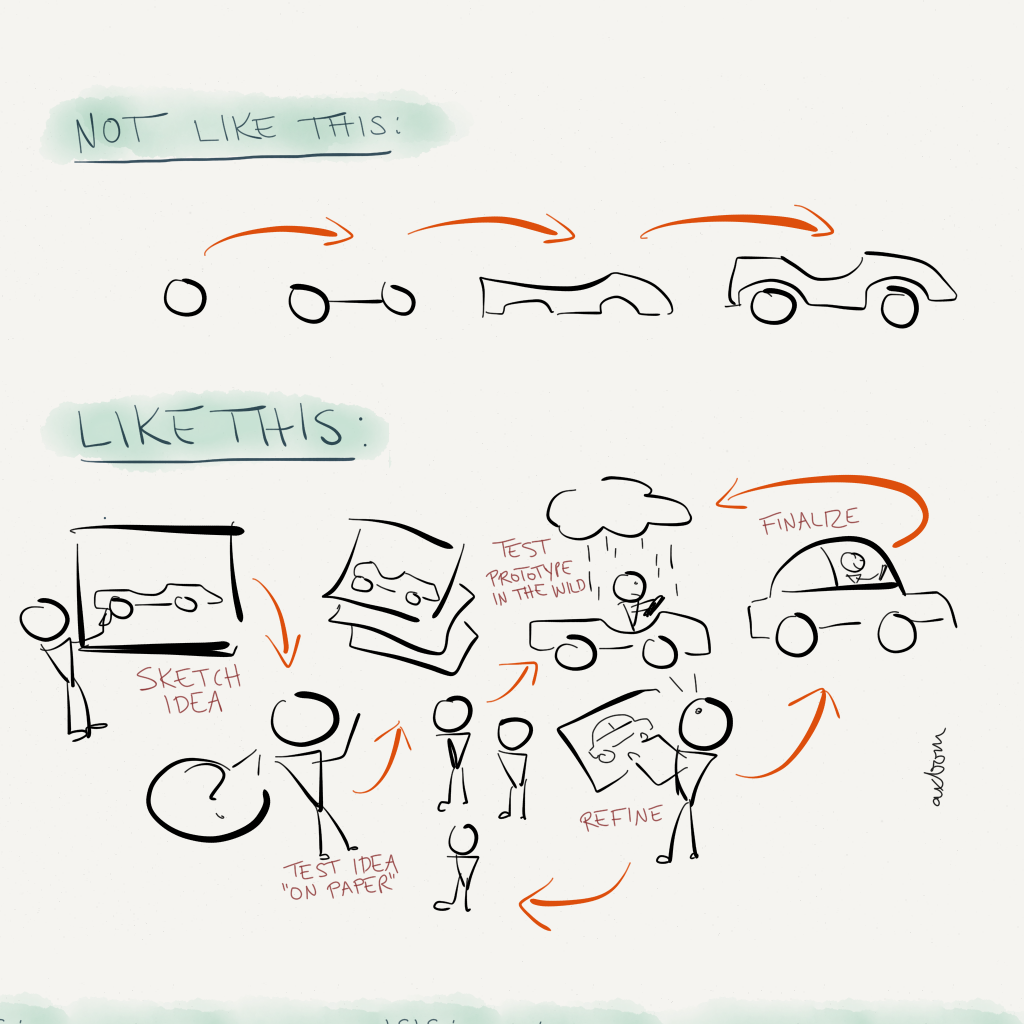 NOT LIKE THIS:
LIKE THIS:
SKETCH
IDEA
?
TEST IDEA
"ON PAPER"
TEST
PROTOTYPE
IN THE WILD
REFINE
FINALIZE
axbom